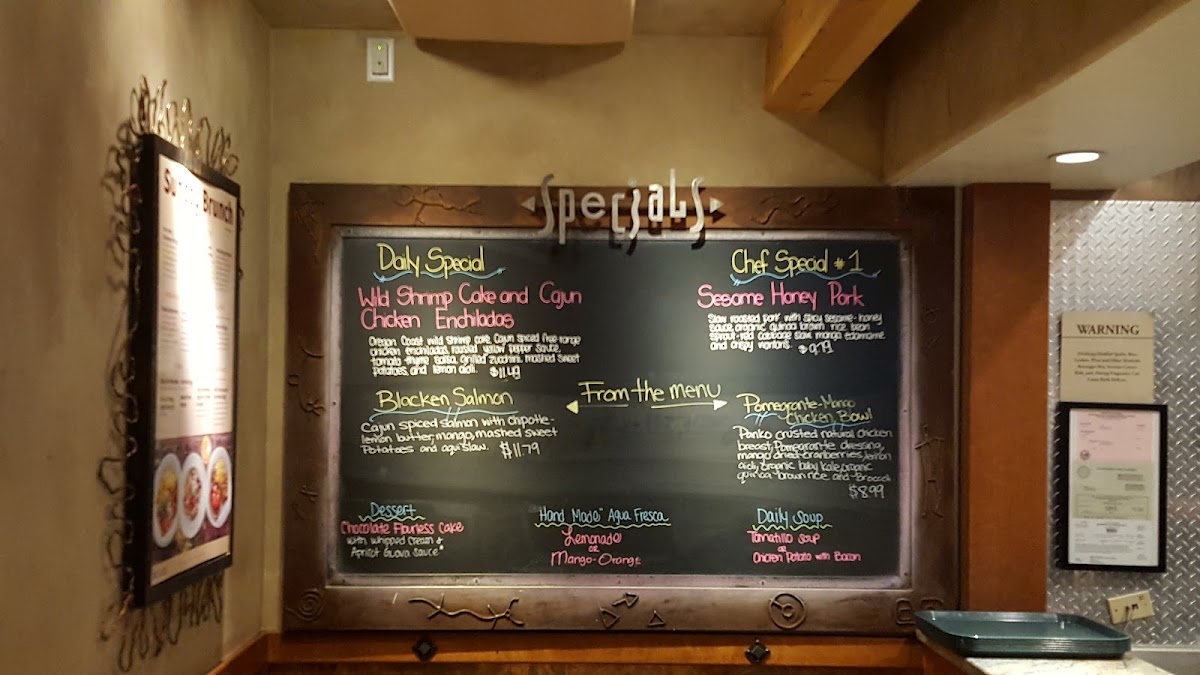 Specials
Daily Special
Wild Shrimp Cake and Cajun
Chicken Enchiladas
Oregon Coast wild shrimp cake, Cajun spiced free range
chicken enchiladas, roasted yellow pepper sauce,
tomato-thyme salsa, grilled zucchini, mashed sweet
potatoes, and lemon aioli. $11.49
Blacken Salmon
Cajun spiced salmon with chipotle-
lemon butter, mango, mashed sweet
Potatoes and aqui slaw. $11.79
From the menu
Chef Special #1
Sesame Honey Pork
Slow roasted pork with spicy sesame-honey
sauce, organic quinoa brown rice, bean
sprout-red cabbage slaw, mango, edamame
and crispy wontons. $9.79
Pomegrante-Mango
Chicken Bowl
Panko crusted natural chicken
breast, Pomegrante dressing,
mango, dried-cranberries, lemon
aioli, organic baby kale, organic
quinoa-brown rice and broccoli
$8.99
Dessert
Chocolate Flourless Cake
with whipped cream &
Apricot Guava sauce
Hand Made Agua Fresca
Lemonade
or
Mango-Orange
Daily Soup
Tomatillo Soup
or
Chicken Potato with Bacon
Sunday Brunch
WARNING